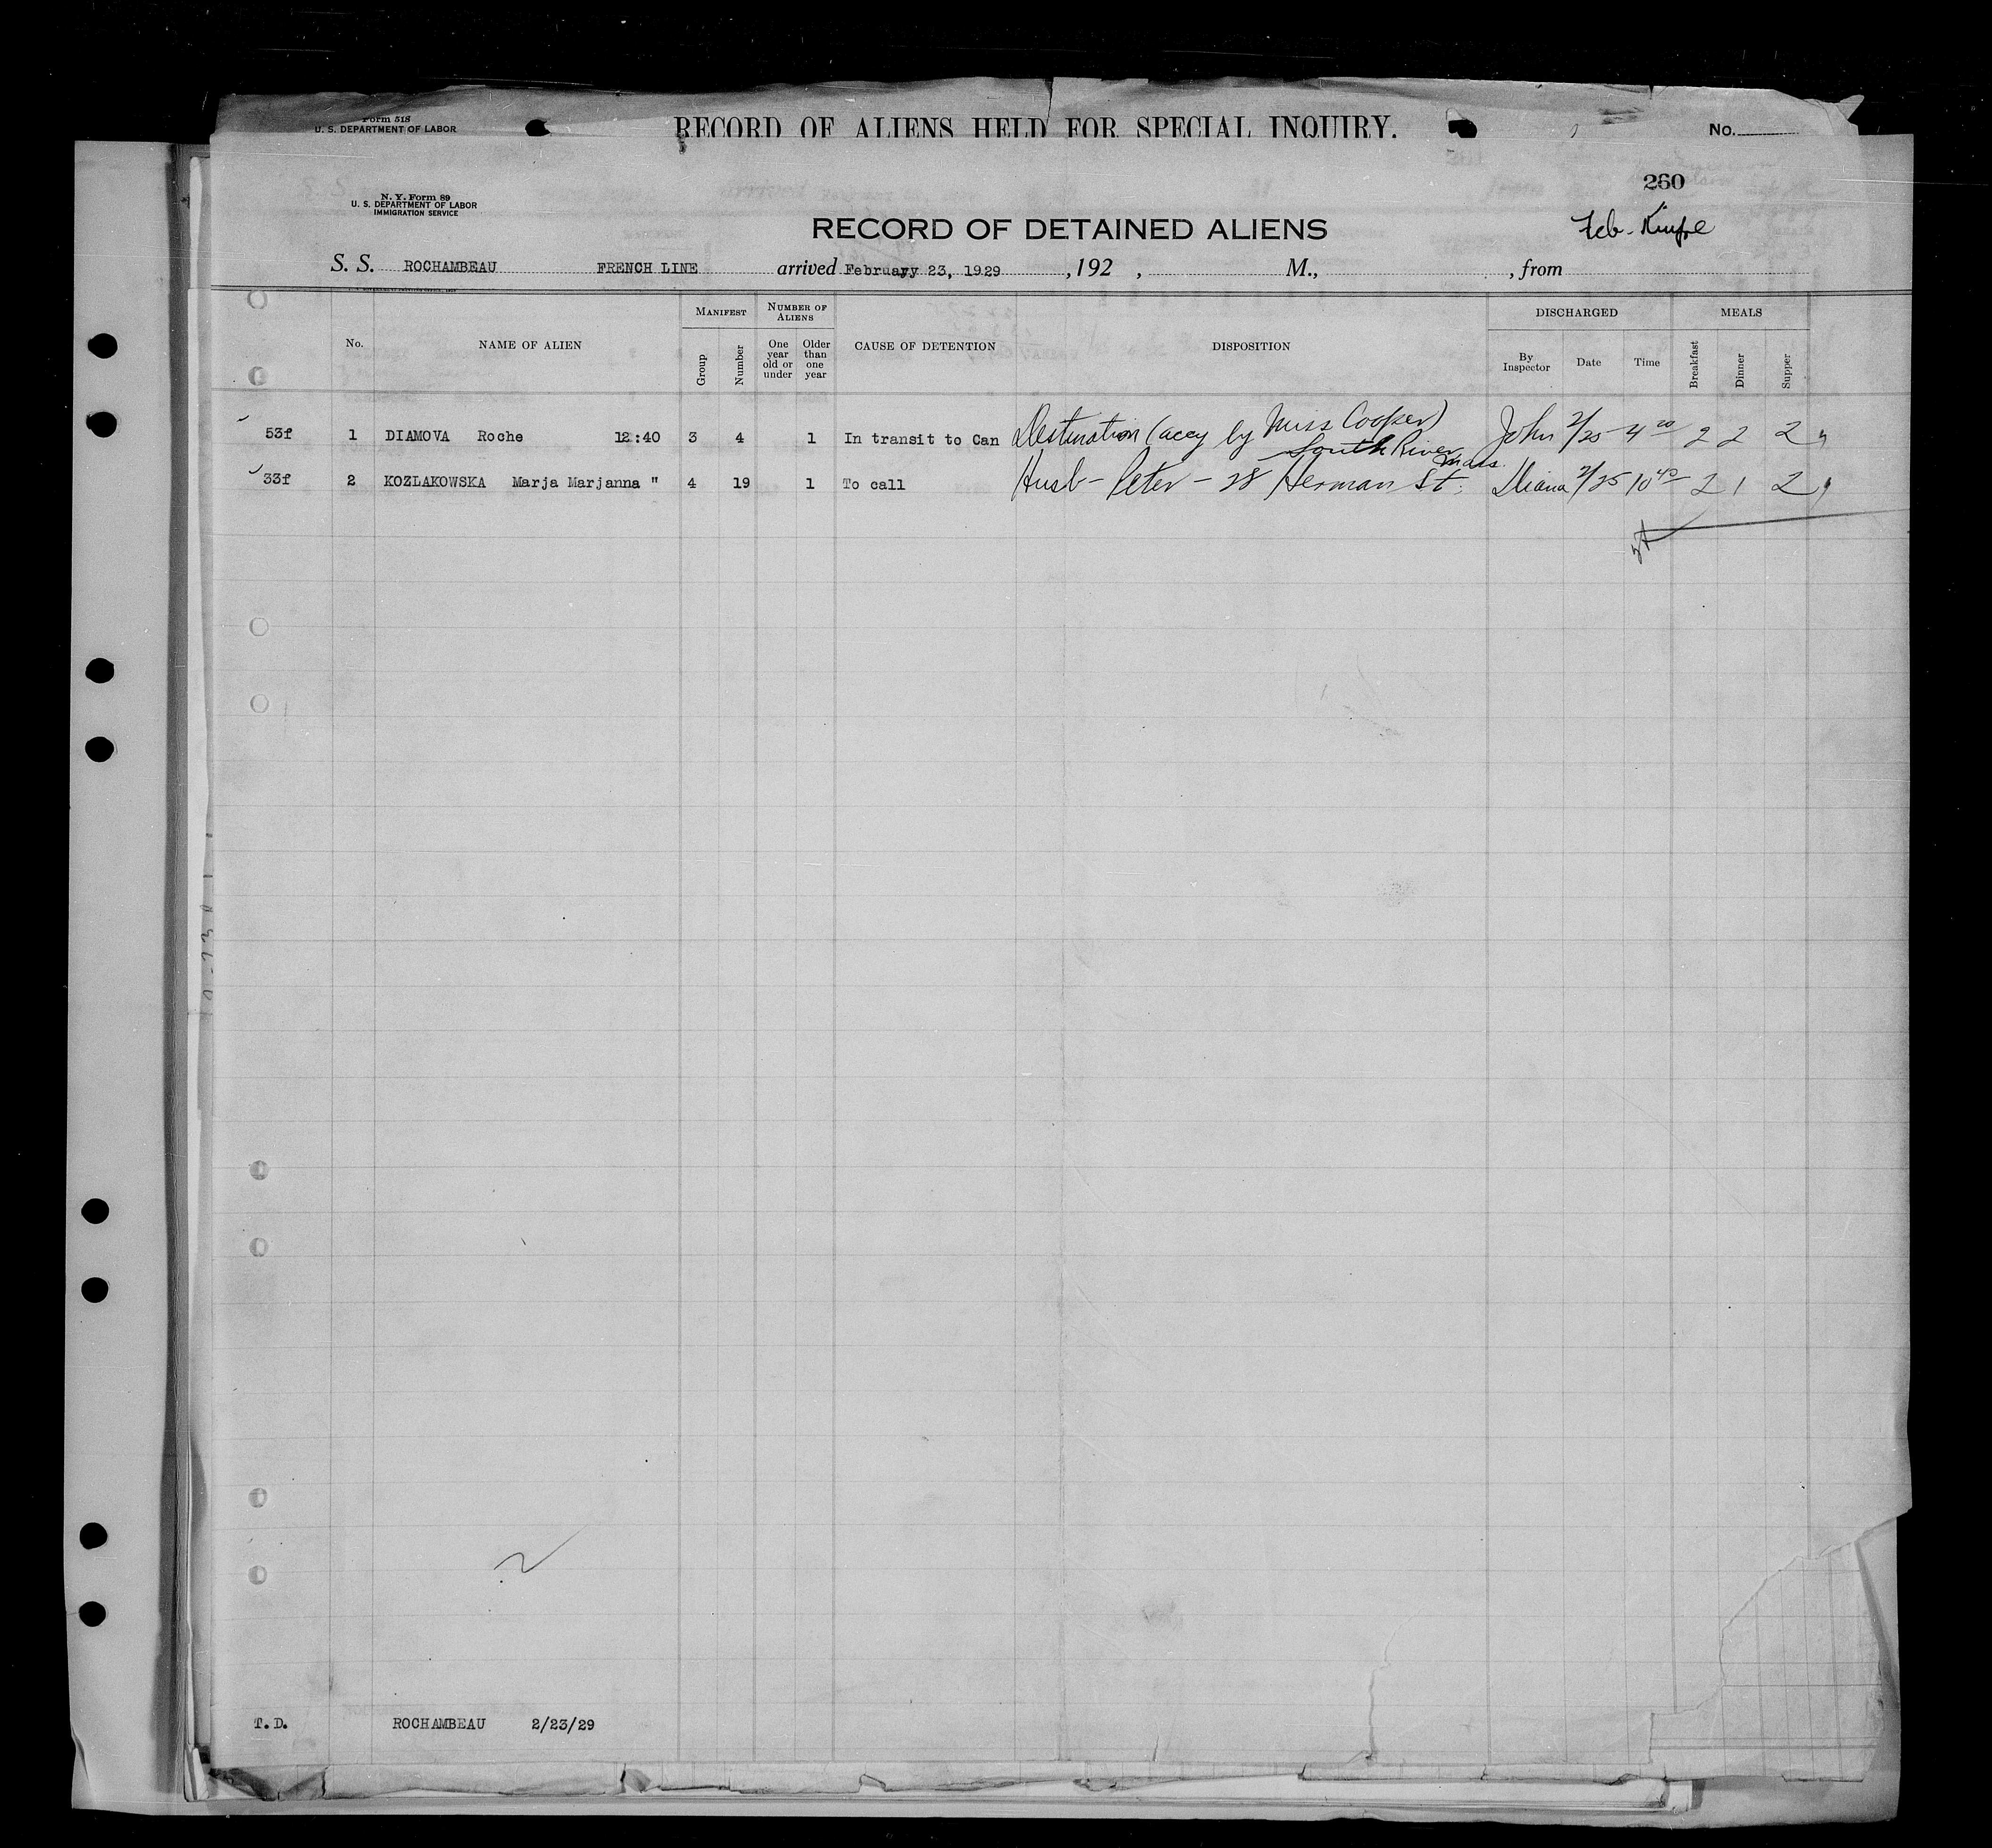 Form 518
U. S. DEPARTMENT OF LABOR
RECORD OF ALIENS HELD FOR SPECIAL INQUIRY.
No.
260
N. Y. Form 89
U. S. DEPARTMENT OF LABOR
IMMIGRATION SERVICE
RECORD OF DETAINED ALIENS
Feb-
S. S. ROCHAMBEAU FRENCH LINE arrived February 23, 1929 , 192 , M., , from
No. NAME OF ALIEN MANIFEST Group Number NUMBER OF ALIENS One year old or under Older than one year CAUSE OF DETENTION DISPOSITION DISCHARGED By Inspector Date Time MEALS Breakfast Dinner Supper
53f 1 DIAMOVA Roche 12:40 3 4 1 In transit to Can Destination (accy by Miss Cooper) John 2/25 4 20 2 2 2
South River Mass.
33f 2 KOZLAKOWSKA Marja Marjanna " 4 19 1 To call Husb - Peter - 28 Herman St. 2/25 10 40 2 1 2
T.D. ROCHAMBEAU 2/23/29